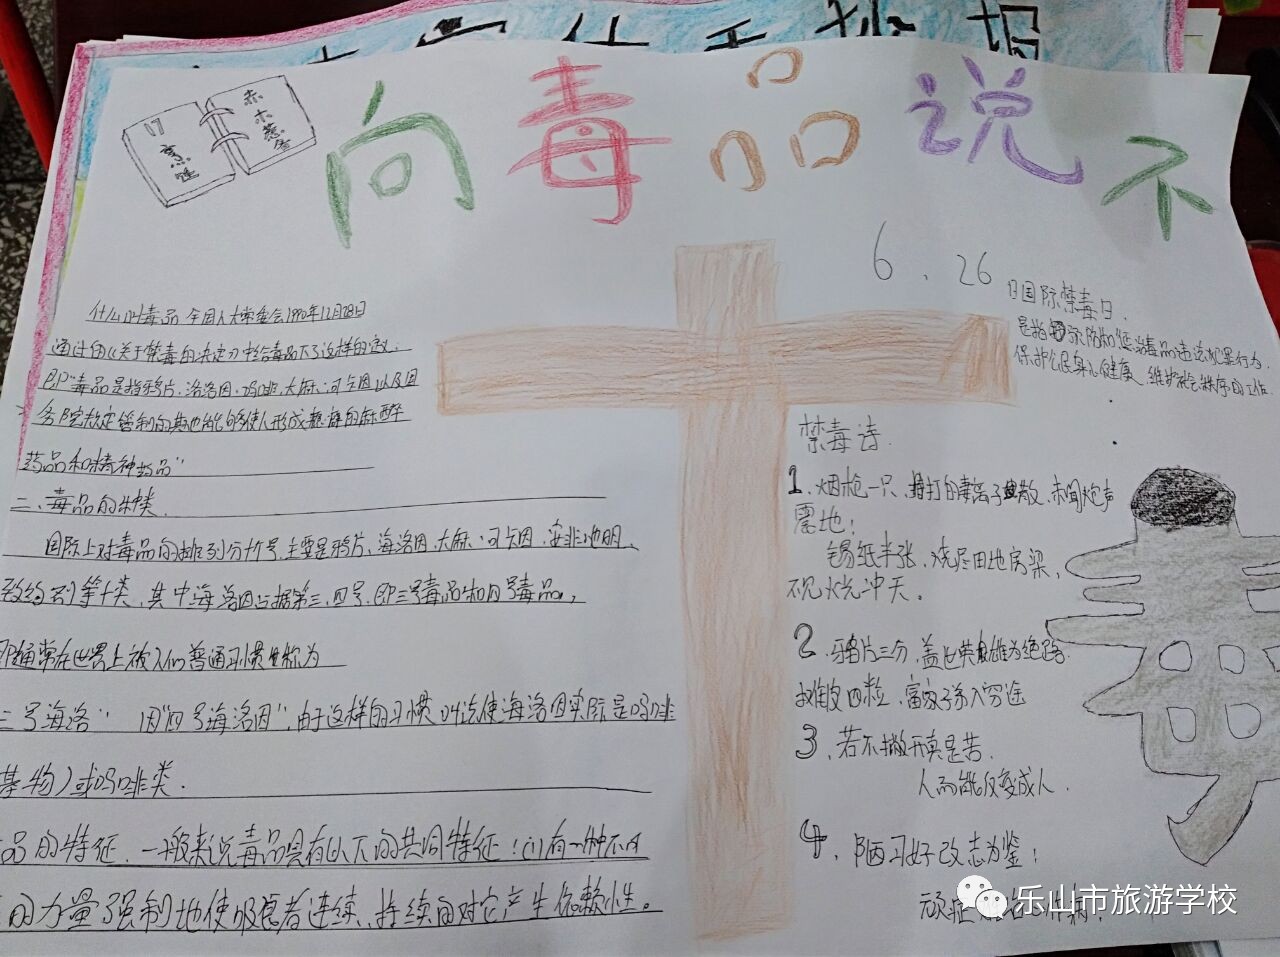 向毒品说不
17烹饪
赤木慕容
6.26日国际禁毒日.
是指国家防和惩治毒品违法犯罪行为,
保护公民身心健康、维护社会秩序的工作.
什么叫毒品 全国人大常委会1990年12月28日
通过的《关于禁毒的决定》中给毒品下了这样的定义:
即"毒品是指鸦片、海洛因、吗啡、大麻、可卡因以及国
务院规定管制的其他能够使人形成瘾癖的麻醉
药品和精神药品"
二、毒品的种类.
国际上对毒品的排列分什号,主要是鸦片、海洛因、大麻、可卡因、安非他明、
致幻剂等十类,其中海洛因占据第三、四号,即三号毒品和四号毒品,
即通常在世界上被人们普通习惯 称为
三号海洛"因"四号海洛因",由于这样的习惯叫法使海洛因实际是吗啡
基物)或吗啡类.
品的特征.一般来说毒品具有以下的共同特征:(1)有一种不可
的力量强制地使吸食者连续、持续的对它产生依赖性。
禁毒诗.
1、烟枪一只, 打的妻离子散,未闻炮声
震地;
锡纸半张,烧尽田地房梁,
不见火光冲天。
2、鸦片三分,盖世英雄为绝路.
 四粒,富家子弟入穷途
3、若不撇开真是苦.
人而能仅变成人.
4、陋习好改志为鉴;
顽症
乐山市旅游学校